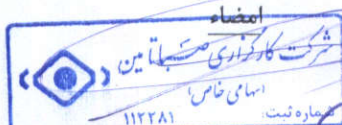 امضاء
شرکت کارگزاری صبا تامین
(سهامی خاص)
شماره ثبت: ۱۱۲۲۸۱